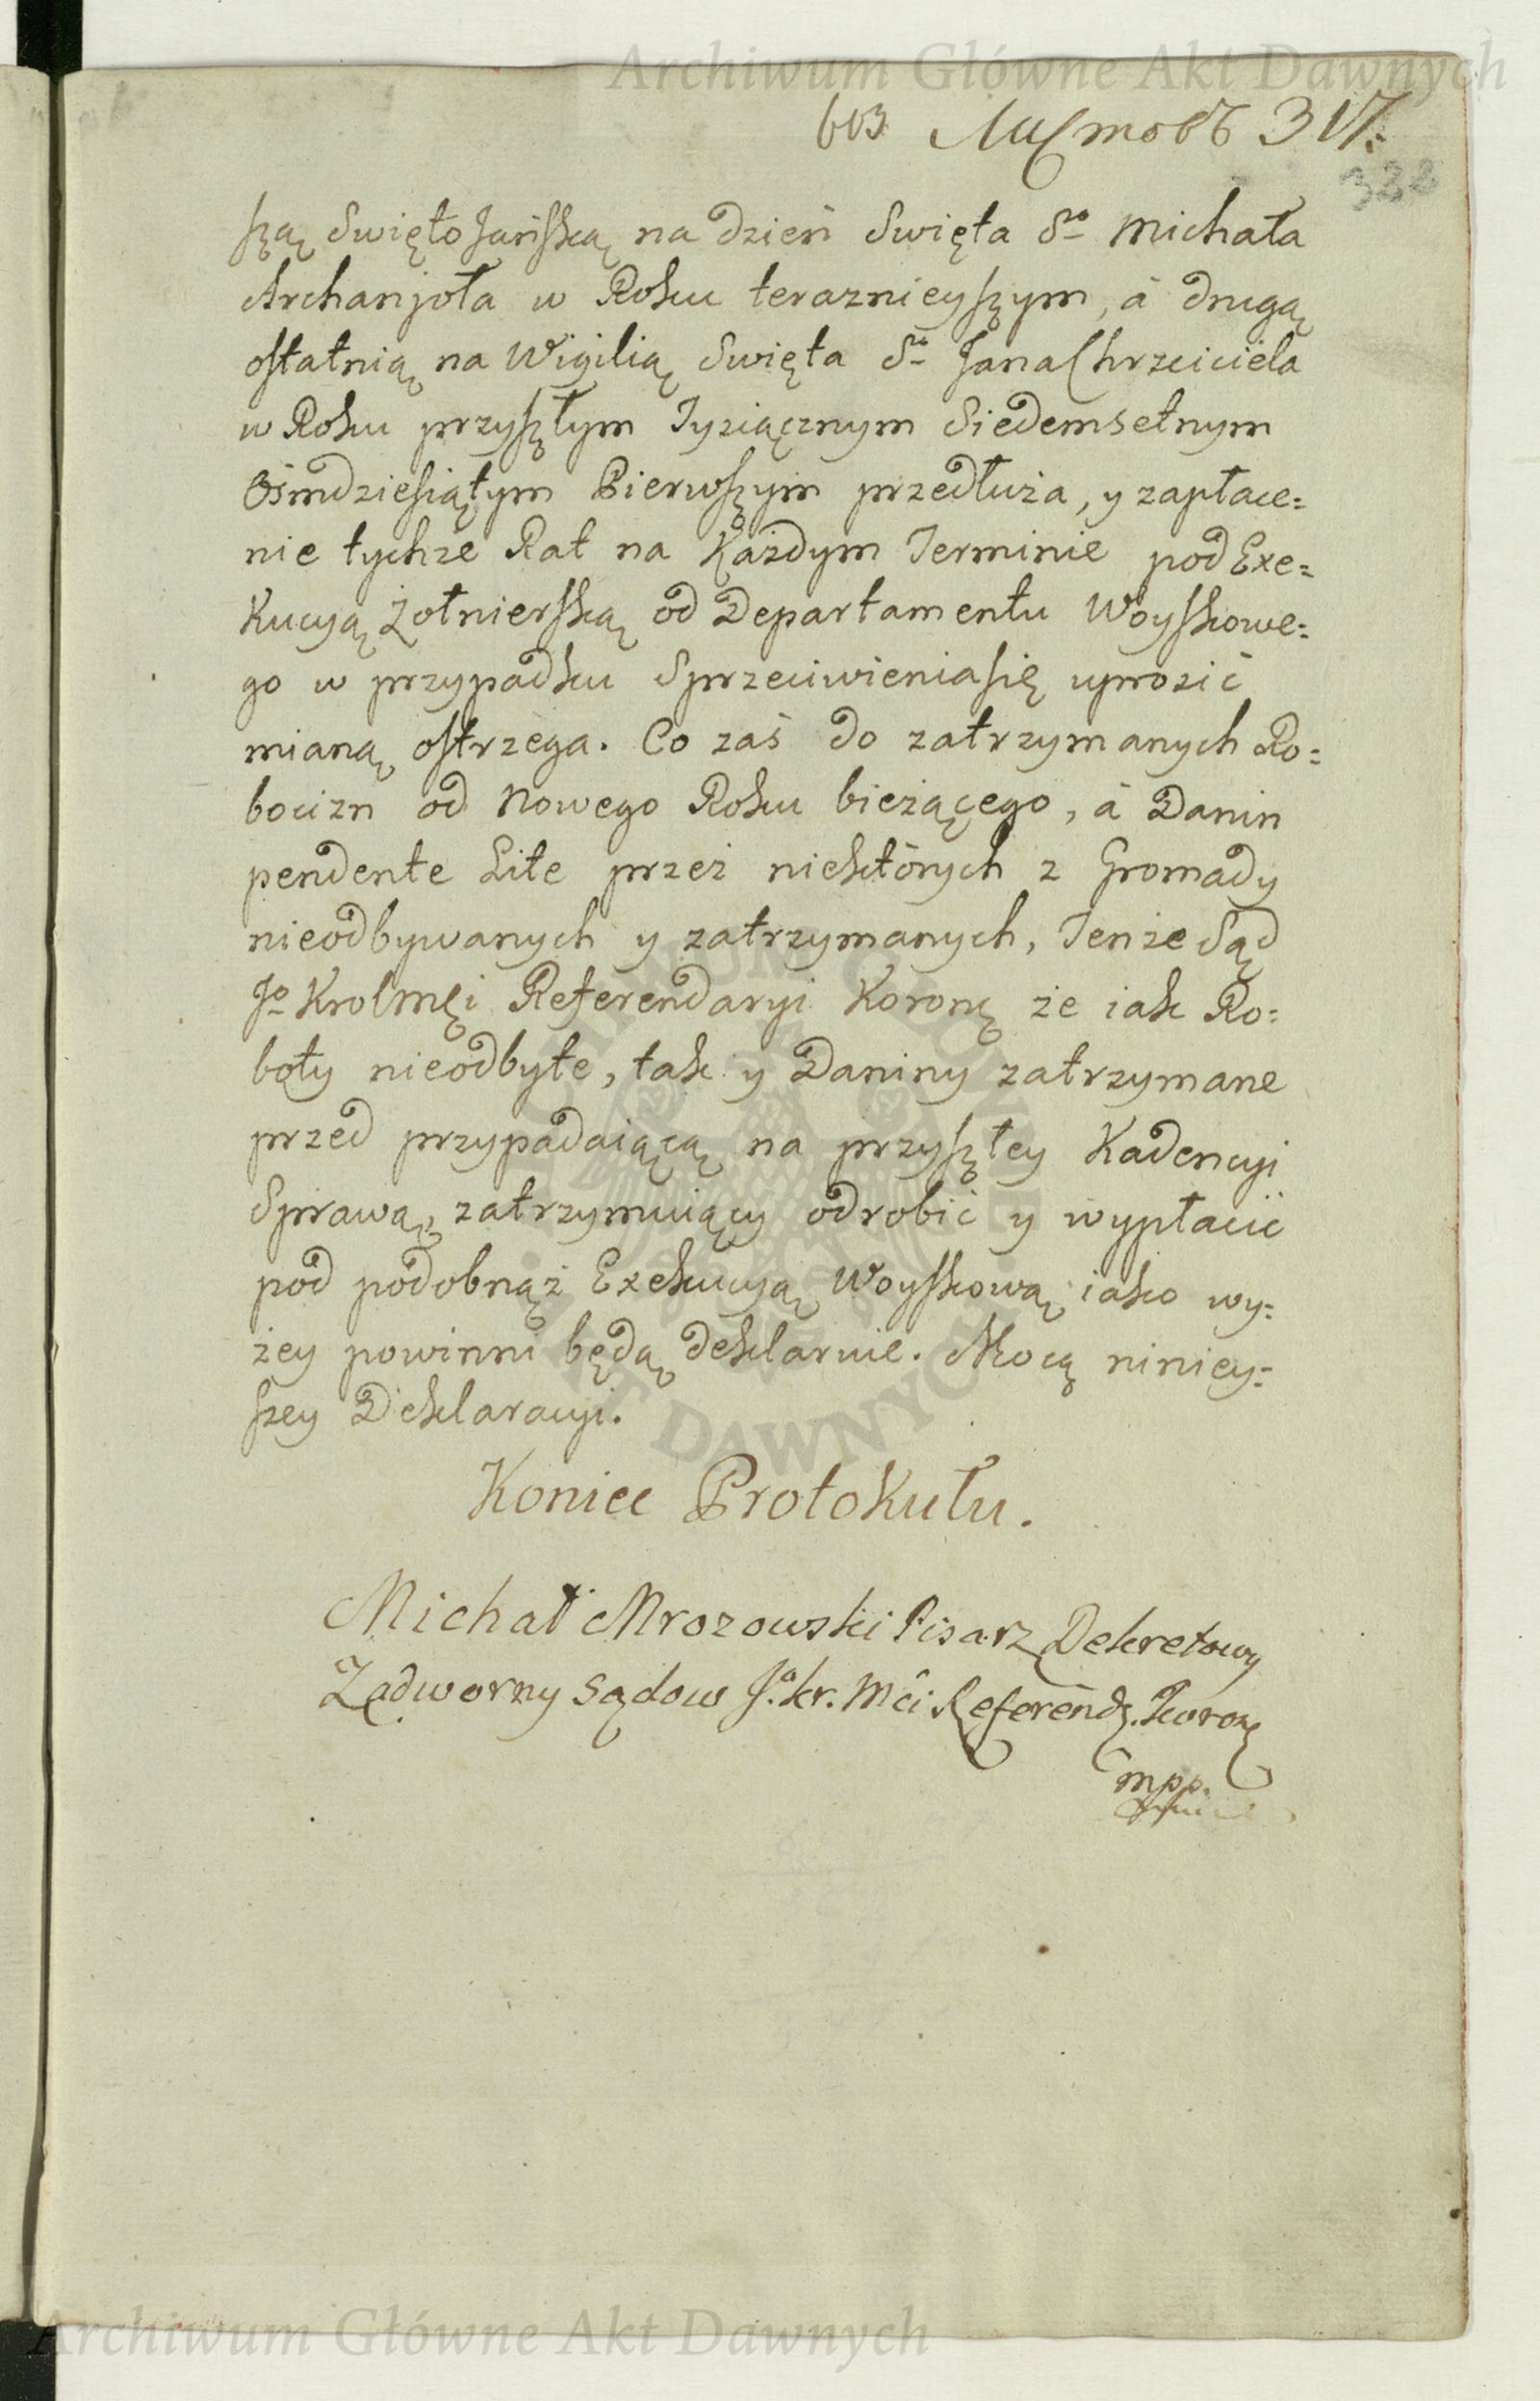 Archiwum Główne Akt Dawnych
603 Листовъ 317:
322
szą Swięto Jańską na dzień Swięta Sgo Michała
Archanjoła w Roku teraznieyszym, á drugą
ostatnią na Wigilią Swięta Sgo Jana Chrzciciela
w Roku przyszłym Tysiącznym Siedemsetnym
Osmdziesiątym Pierwszym przedłuża, y zapłace=
nie tychże Rat na Każdym Terminie pod Exe=
Kucyą Żołnierską od Departamentu Woyskowe=
go w przypadku Sprzeciwienia się uprosić
mianą ostrzega. Co zaś do zatrzymanych Ro=
bocizn od Nowego Roku bieżącego, á Danin
pendente Lite przez niektórych z Gromady
nieodbywanych y zatrzymanych, Tenże Sąd
Jo Krolmći Referendaryi Koronę że iak Ro=
boty nieodbyte, tak y Daniny zatrzymane
przed przypadaiącą na przyszłey Kadencyi
Sprawą, zatrzymuiący odrobić y wypłacić
pod podobnąż Exekucyą Woyskową iako wy=
żey powinni będą deklaruie. Mocą niniey=
szey Deklaracyi.
Koniec Protokułu.
Michał Mrozowski Pisarz Dekretowy
Zadworny Sądow Jo. kr. Mći Referendz. Koron
mpp.
ARCHIWUM GŁÓWNE AKT DAWNYCH
Archiwum Główne Akt Dawnych